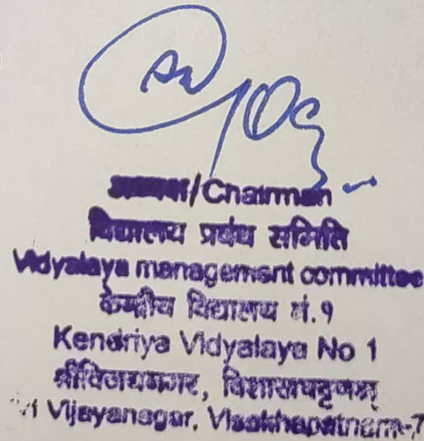 अध्यक्ष/Chairman
विद्यालय प्रबंध समिति
Vidyalaya management committee
केन्द्रीय विद्यालय नं.१
Kendriya Vidyalaya No 1
श्रीविजयनगर, विशाखपट्टणम्
Vijayanagar, Visakhapatnam-7